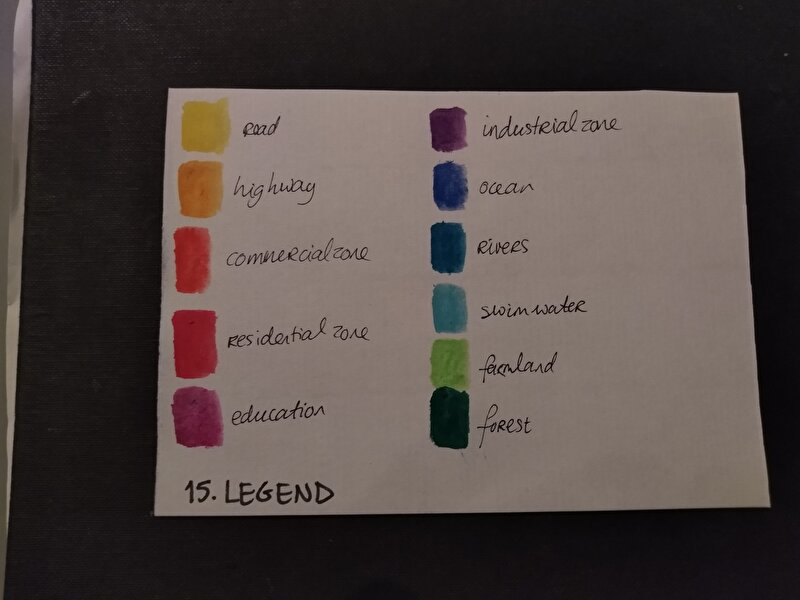 road
highway
commercial zone
residential zone
education
industrial zone
ocean
rivers
swim water
farmland
forest
15. LEGEND